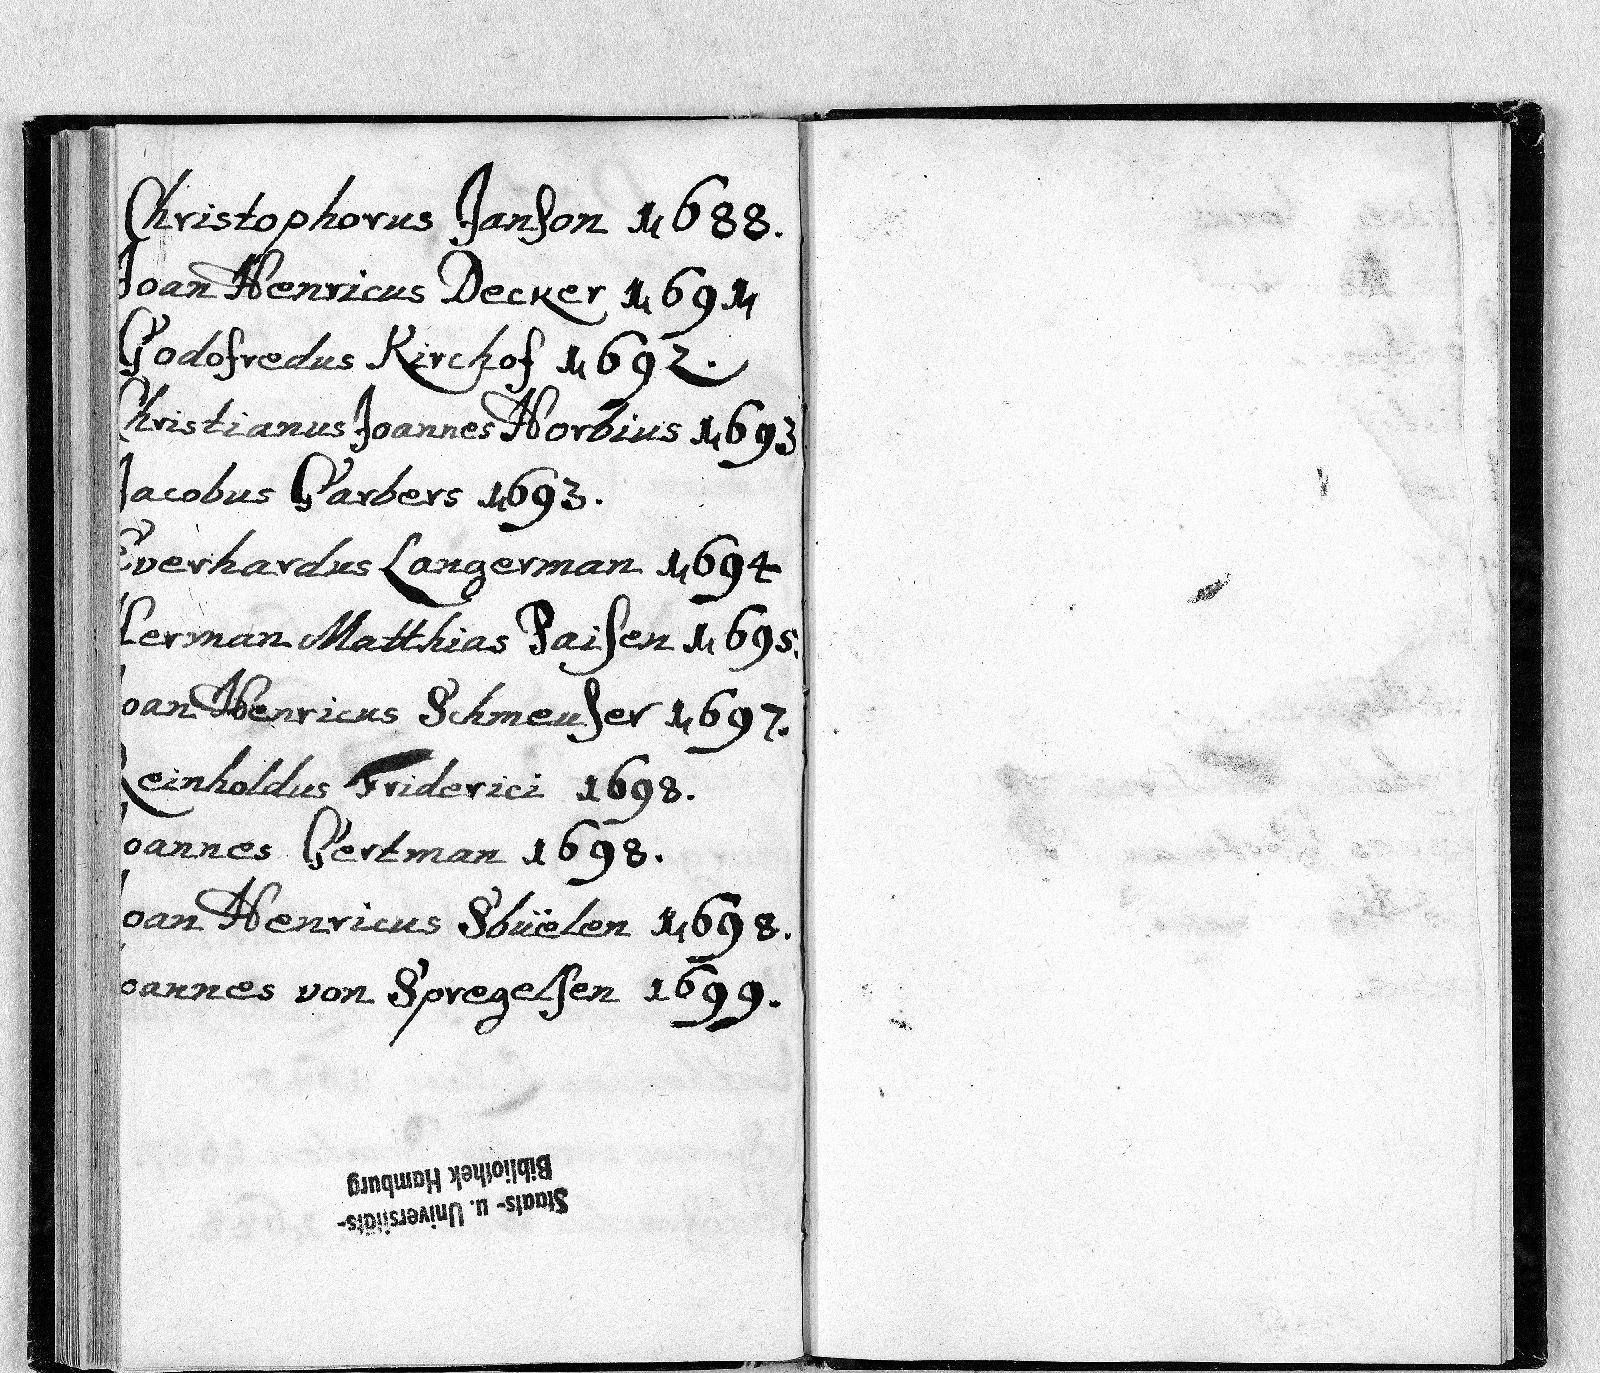 Christophorus Janſon 1688.
Joan Henricus Decker 1691
Godofredus Kirchof 1692.
Christianus Joannes Horbius 1693
Jacobus Garbers 1693.
Everhardus Langerman 1694
Herman Matthias Paiſen 1695.
Joan Henricus Schmeuſer 1697.
Reinholdus Friderici 1698.
Joannes Gertman 1698.
Joan Henricus Sbüelen 1698.
Joannes von Spregelſen 1699.
Staats- u. Universitäts-
Bibliothek Hamburg